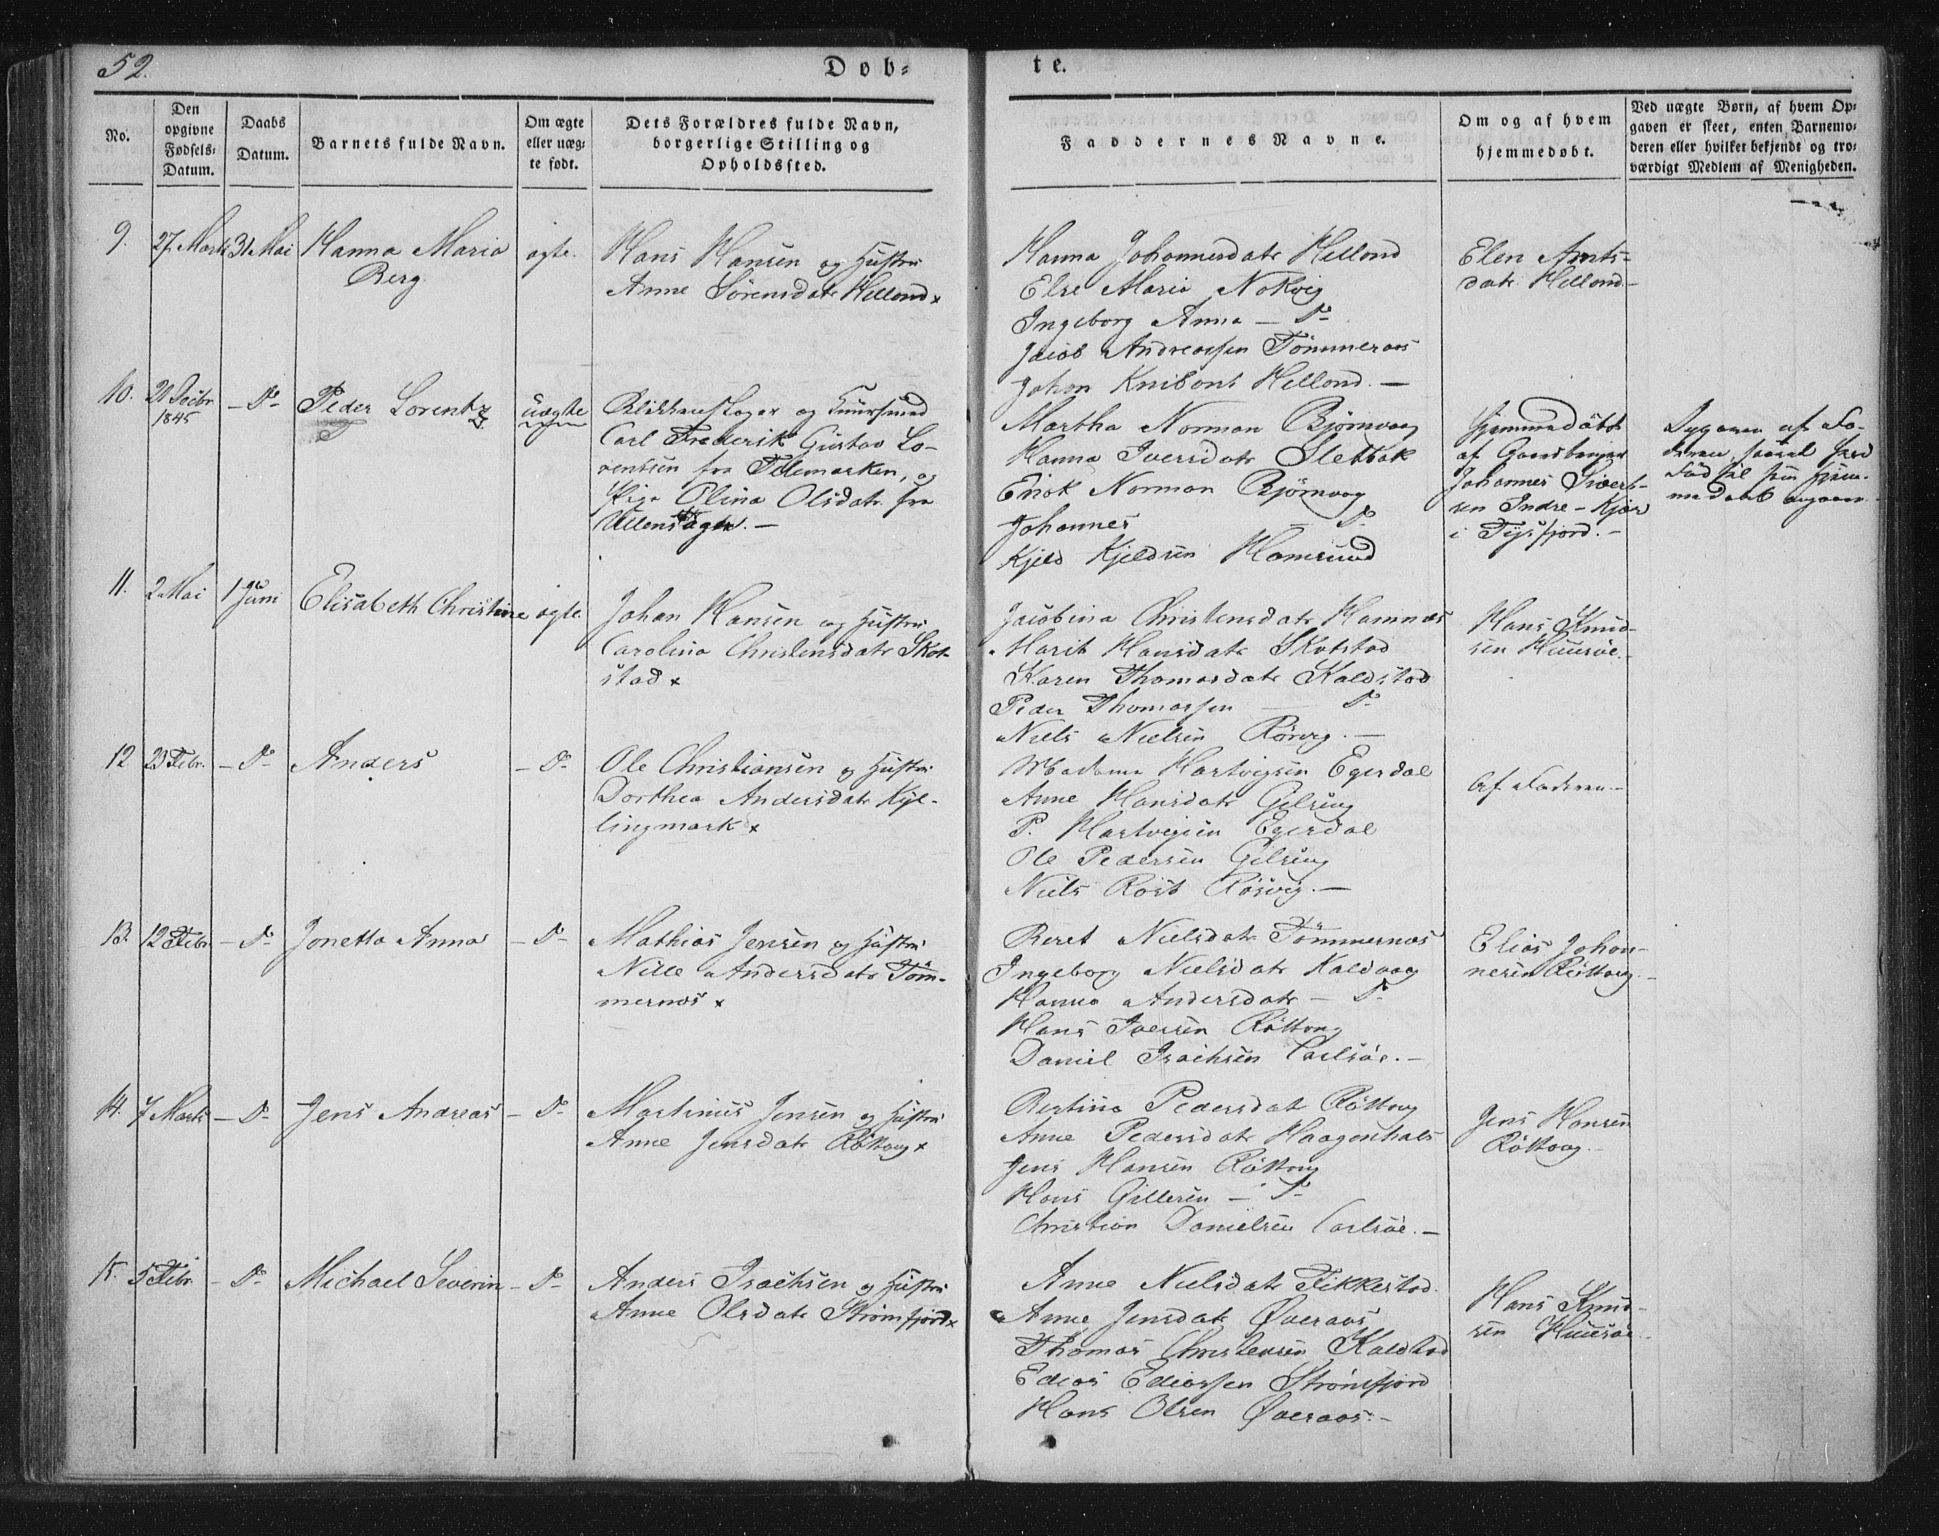 52.
Døb=
te.
No.
Den
opgivne
Fødsels=
Datum.
Daabs
Datum.
Barnets fulde Navn.
Om ægte
eller uæg=
te født.
Dets Forældres fulde Navn,
borgerlige Stilling og
Opholdssted.
Faddernes Navne.
Om og af hvem
hjemmedøbt.
Ved uægte Børn, af hvem Op=
gaven er skeet, enten Barnemo=
deren eller hvilket bekjendt og tro=
værdigt Medlem af Menigheden.
9. 27 Marts 31 Mai Hanna Maria
Berg
ægte.
Hans Hansen og Hustru
Anne Sørensdatr Hellond x
Hanna Johannesdatr Hellond
Else Maria Nokvig
Ingeborg Anna — Do
Jacob Andreassen Tømmeraas
Johan Knibons Hellond. —
Elen Arnts=
datr Hellond —
10. 21 Decbr
1845
— Do Peder Lorentz
uægte
og
Carl Frederik Gustav Lo-
rentsen fra Telemarken, og
Pige Olina Olsdatr fra
Ullensager. —
Martha Norman Bjørnvaag
Hanna Iversdatr Slettok
Erick Norman Bjørnvaag
Johannes Do
Kjeld Kjeldsen Hamsund
Hjemmedøbt
af Gaardbruger
Johannes Sivert-
sen Indre-Kjær
i Tysfjord. —
Opgaven af Fa-
deren
11. 2 Mai 1 Juni Elisabeth Christine ægte
Johan Hansen og Hustru
Carolina Christensdatr Skot-
stad x
Jacobina Christensdatr Hamnæs
Marit Hansdatr Skotstad
Karen Thomasdatr Kaldstad
Peder Thomassen — Do
Niels Nielsen Rørvig. —
Hans Knud-
sen Huusøe. —
12 23 Febr. — Do Anders — Do
Ole Christiansen og Hustru
Dorthea Andersdatr Kyl-
lingmark x
Madame Hartvigsen Egerdal
Anne Hansdatr Gilsing
P. Hartvigsen Egerdal
Ole Pedersen Gilsing
Niels Rost Rösvig. —
Af Faderen —
13. 12 Febr — Do Jonetta Anna — Do
Mathias Jensen og Hustru
Nille Andersdatr Töm-
mernæs x
Beret Nielsdatr Tömmernæs
Ingeborg Nielsdatr Kaldvaag
Hanna Andersdatr — Do
Hans Iversen Röttvaag
Daniel Isachsen Carlsöe. —
Elias Johan-
nesen Röttvaag. —
14. 7 Marts — Do Jens Andreas — Do
Martinus Jensen og Hustru
Anne Jensdatr Röttvaag x
Bertina Pedersdatr Röttvaag
Anne Pedersdatr Haagenhals
Jens Hansen Röttvaag
Hans Gillesen — Do
Christian Danielsen Carlsöe. —
Jens Hansen
Röttvaag. —
15. 5 Febr. — Do Michael Severin — Do
Anders Isachsen og Hustru
Anne Olsdatr Strömsfjord x
Anne Nielsdatr Fikkestad
Anne Jensdatr Øveraas
Thomas Christensen Kaldstad
Edias Ediassen Strömsfjord
Hans Olsen Øveraas. —
Hans Knud-
sen Huusøe. —